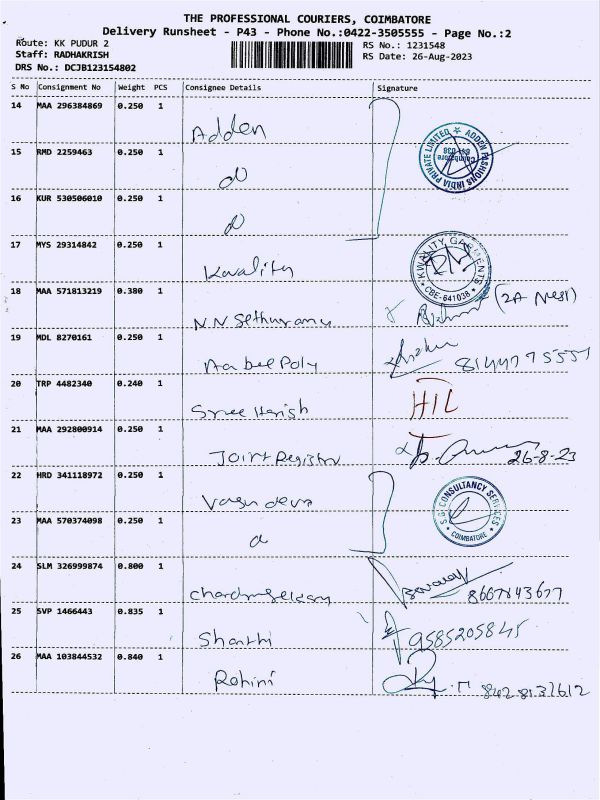 THE PROFESSIONAL COURIERS, COIMBATORE
Delivery Runsheet - P43 - Phone No.:0422-3505555 - Page No.:2
Route: KK PUDUR 2
RS No.: 1231548
Staff: RADHAKRISH
RS Date: 26-Aug-2023
DRS No.: DCJB123154802
S No Consignment No Weight PCS Consignee Details Signature
14 MAA 296384869 0.250 1 Adden
ADDEN FASHIONS INDIA PRIVATE LIMITED Coimbatore 641 038
15 RMD 2259463 0.250 1
16 KUR 530506010 0.250 1
17 MYS 29314842 0.250 1 Kwality
KWALITY GARMENTS CBE-641038
18 MAA 571813219 0.380 1 N.N Sethuramu (2A Nest)
19 MDL 8270161 0.250 1 Aabee Poly 8144775551
20 TRP 4482340 0.240 1 Sree Harish HIL
21 MAA 292800914 0.250 1 Joint Registrar 26-8-23
22 HRD 341118972 0.250 1 Vasudeva
S.G. CONSULTANCY SERVICES COIMBATORE
23 MAA 570374098 0.250 1
24 SLM 326999874 0.800 1 Chandrasekaran 8667843677
25 SVP 1466443 0.835 1 Shanthi 9585205845
26 MAA 103844532 0.840 1 Rohini 8428137612